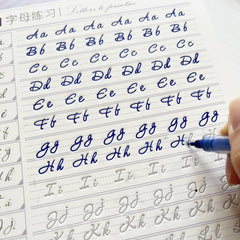 字母练习 Letters to practice
Aa Aa Aa Aa Aa Aa
Bb Bb Bb Bb Bb Bb
Cc Cc Cc Cc Cc Cc
Dd Dd Dd Dd Dd Dd
Ee Ee Ee Ee Ee Ee
Ff Ff Ff Ff Ff Ff
Gg Gg Gg Gg Gg Gg
Hh Hh Hh Hh Hh
Ii Ii Ii Ii Ii
Jj Jj Jj Jj Jj
Kk Kk Kk Kk Kk